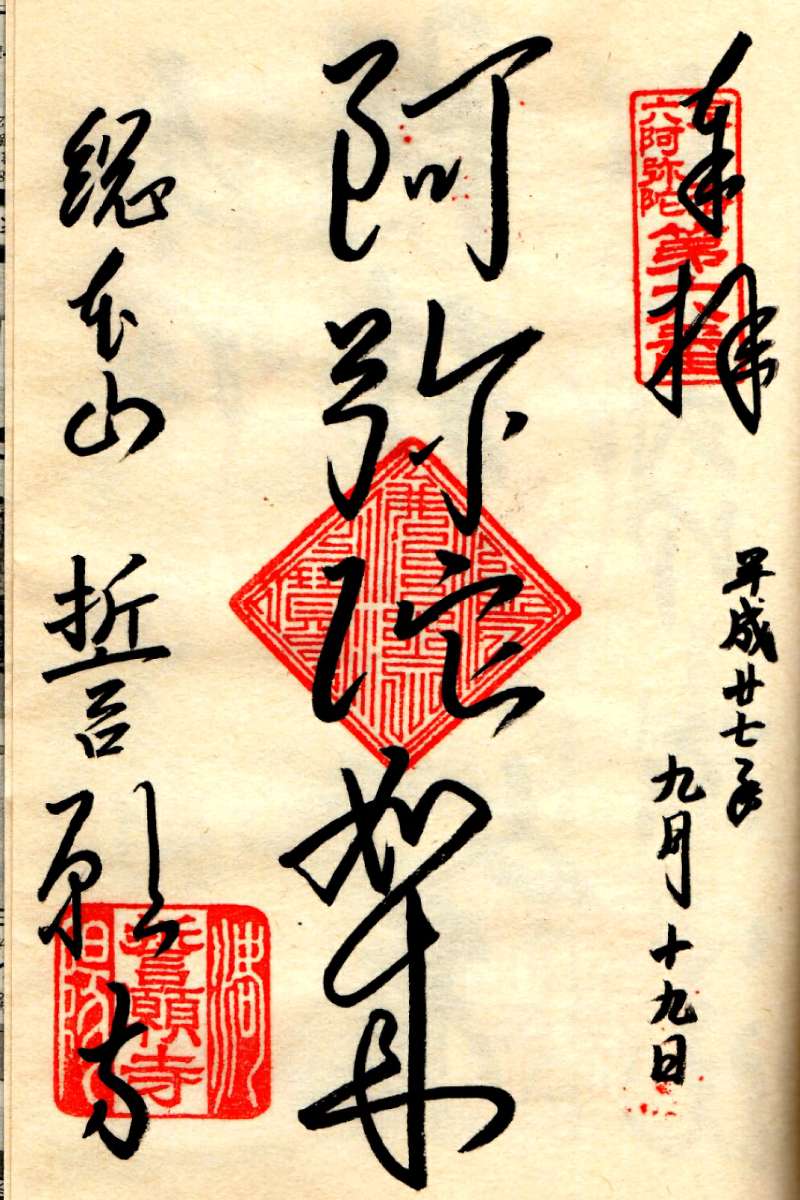 奉拝
六阿弥陀
第六番
平成廿七年
九月十九日
阿弥陀如来
総本山 誓願寺
誓願寺